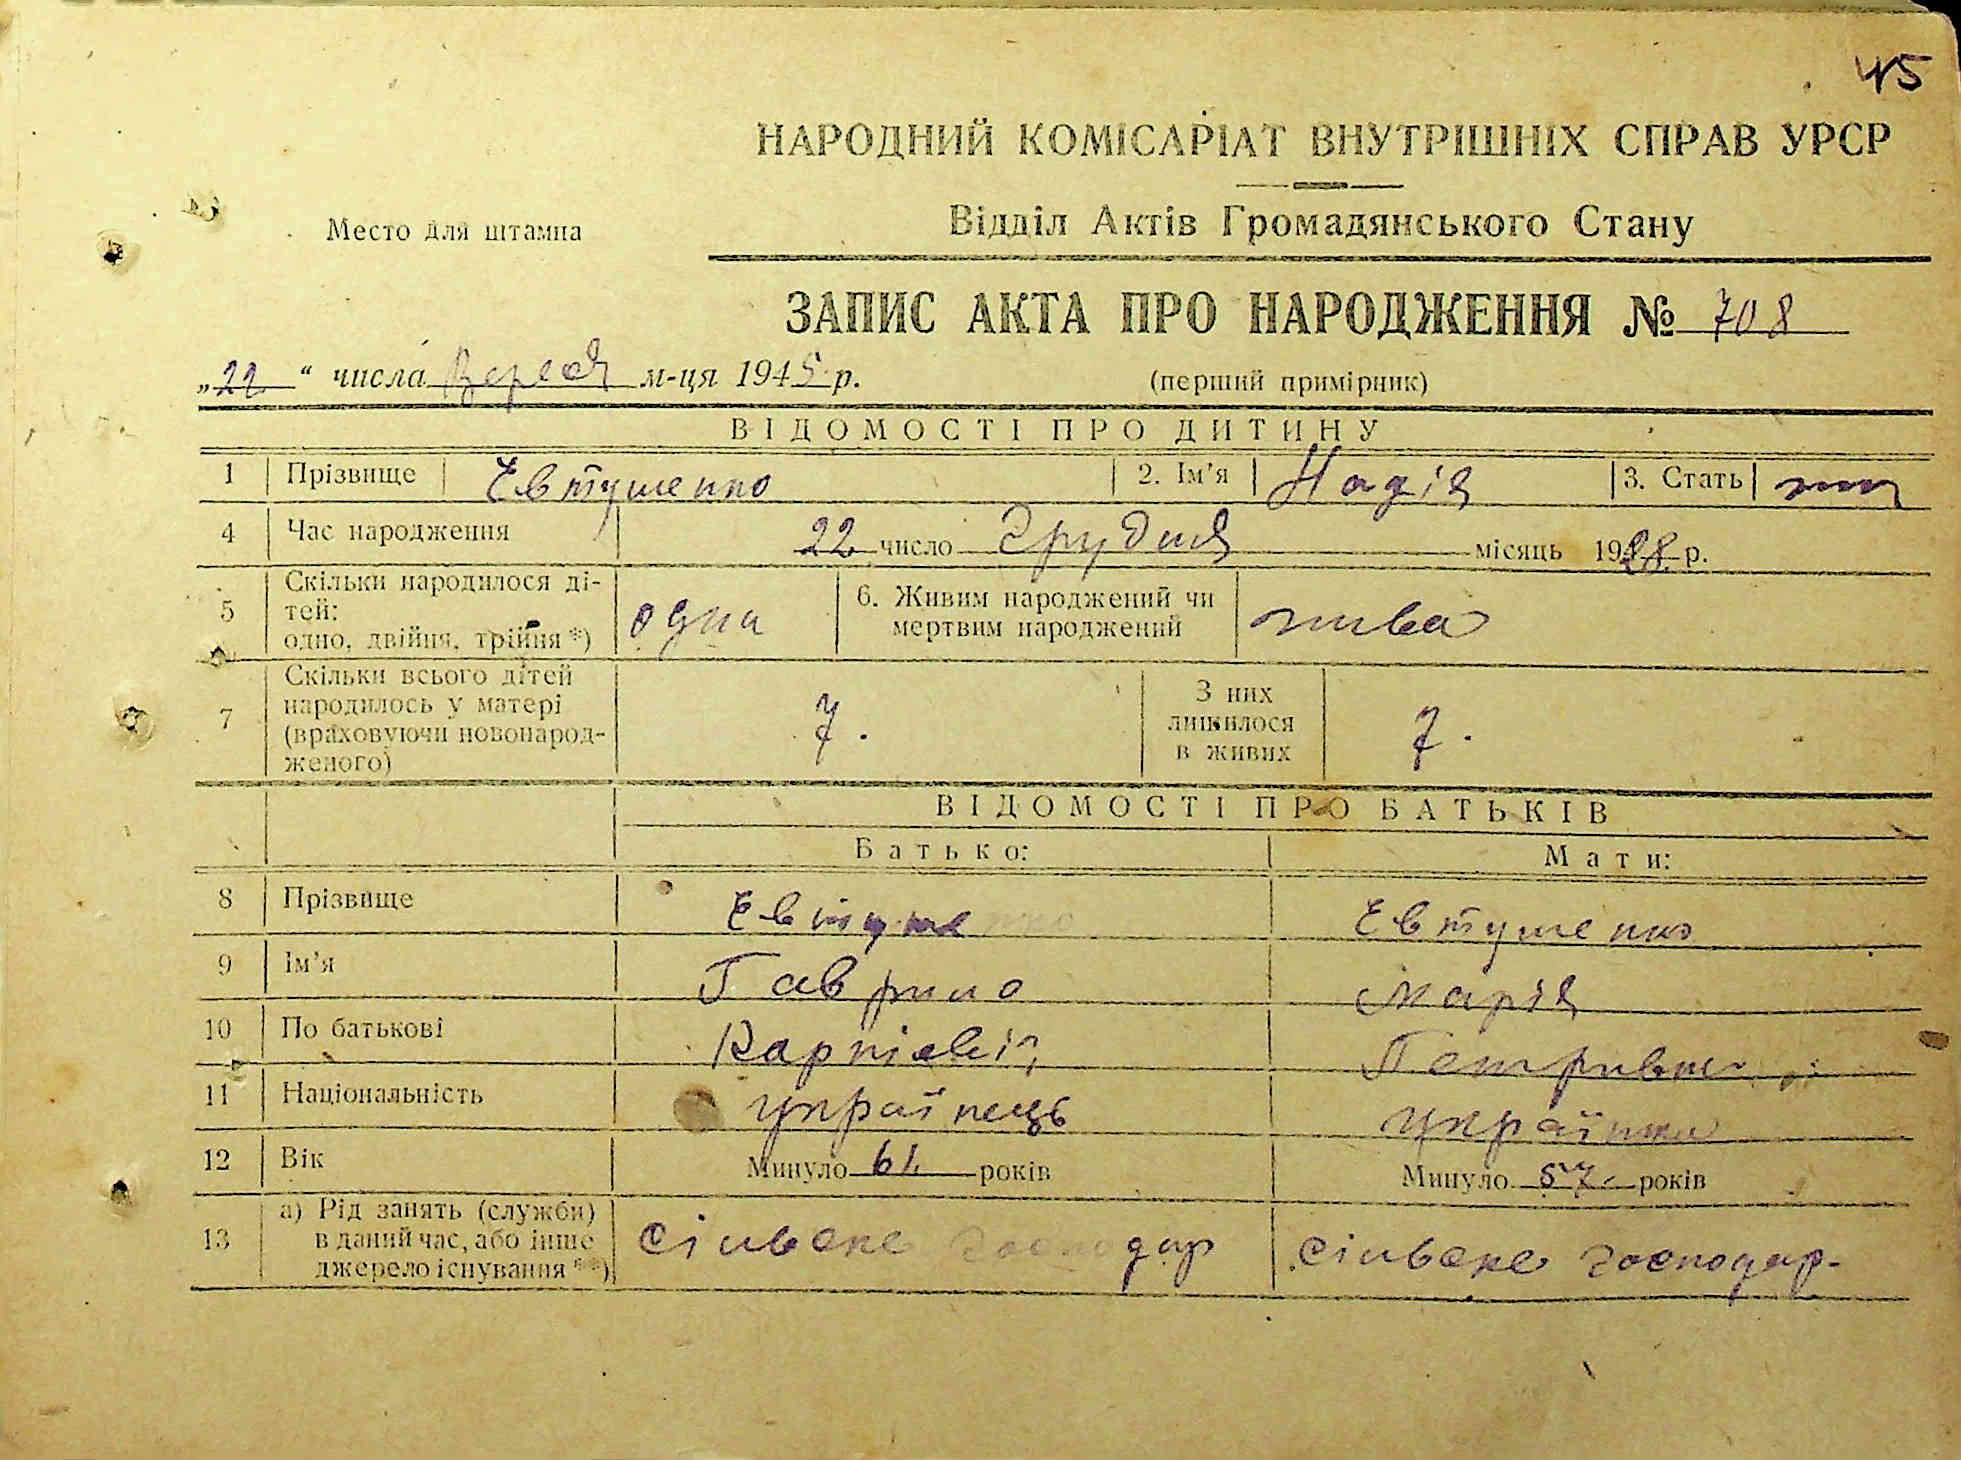 45
НАРОДНИЙ КОМІСАРІАТ ВНУТРІШНІХ СПРАВ УРСР
Место для штампа
Відділ Актів Громадянського Стану
ЗАПИС АКТА ПРО НАРОДЖЕННЯ № 708
„22“ числа Вересня м-ця 1945 р. (перший примірник)
ВІДОМОСТІ ПРО ДИТИНУ
1 Прізвище Евтушенко 2. Ім’я Надія 3. Стать жін
4 Час народження 22 число Грудня місяць 1928 р.
5 Скільки народилося ді-
тей:
одно, двійня, трійня*) одна 6. Живим народжений чи
мертвим народжений жива
7 Скільки всього дітей
народилось у матері
(враховуючи новонарод-
женого) 7. З них
лишилося
в живих 7.
ВІДОМОСТІ ПРО БАТЬКІВ
Батько: Мати:
8 Прізвище Евтушенко Евтушенко
9 Ім’я Гаврило Марія
10 По батькові Карпієвіч Петривна
11 Національність українець українка
12 Вік Минуло 61. років Минуло 57. років
13 а) Рід занять (служби)
в даний час, або інше
джерело існування**) Сільске господар Сільске господар-